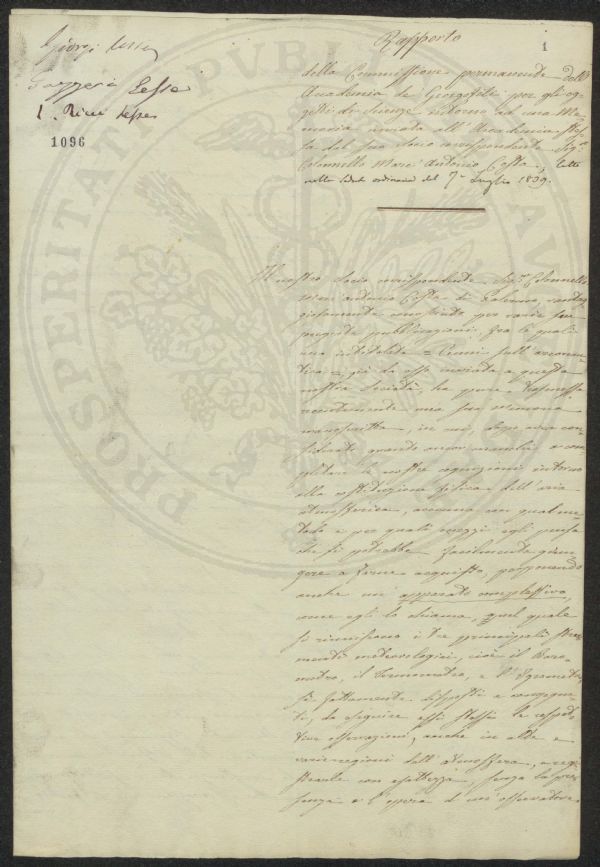 Giorgi lesse
Gazzeri lesse
L. Ricci lesse
1096
Rapporto
1
della Commissione permanente dell'
Accademia de' Georgofili per gli og
getti di Scienze intorno ad una Me
moria inviata all'Accademia stes
sa dal suo socio corrispondente Sigr.
Colonnello Marc'Antonio Costa, letto
nella seduta ordinaria del 7 Luglio 1839.
Il nostro socio corrispondente Sigr. Colonnello
Marc'Antonio Costa di Salerno, vantag
giosamente conosciuto per varie sue
pregiate pubblicazioni, fra le quali
una intitolata = Cenni sull'
= già da esso inviata a questa
nostra Società, ha pure trasmessa
recentemente una sua memoria
manoscritta, in cui, dopo aver con
siderato quanto ancor manchi a com
pletare le nostre cognizioni intorno
alla costituzione fisica dell'aria
atmosferica, accenna con qual me
todo e per quali mezzi egli pensa
che si potrebbe facilmente giun
gere a farne acquisto, proponendo
anche un apparato complessivo,
come egli lo chiama, nel quale
si riunissero i tre principali stru
menti meteorologici, cioè il Baro
metro, il Termometro, e l'Igrometro,
sì fattamente disposti e congegna
ti, da eseguire essi stessi le rispet
tive osservazioni, anche in alte e
varie regioni dell'atmosfera, e regi
strarle con esattezza, senza la pre
senza e l'opera d'un'osservatore.
PROSPERITATI PVBLICAE AVGENDAE